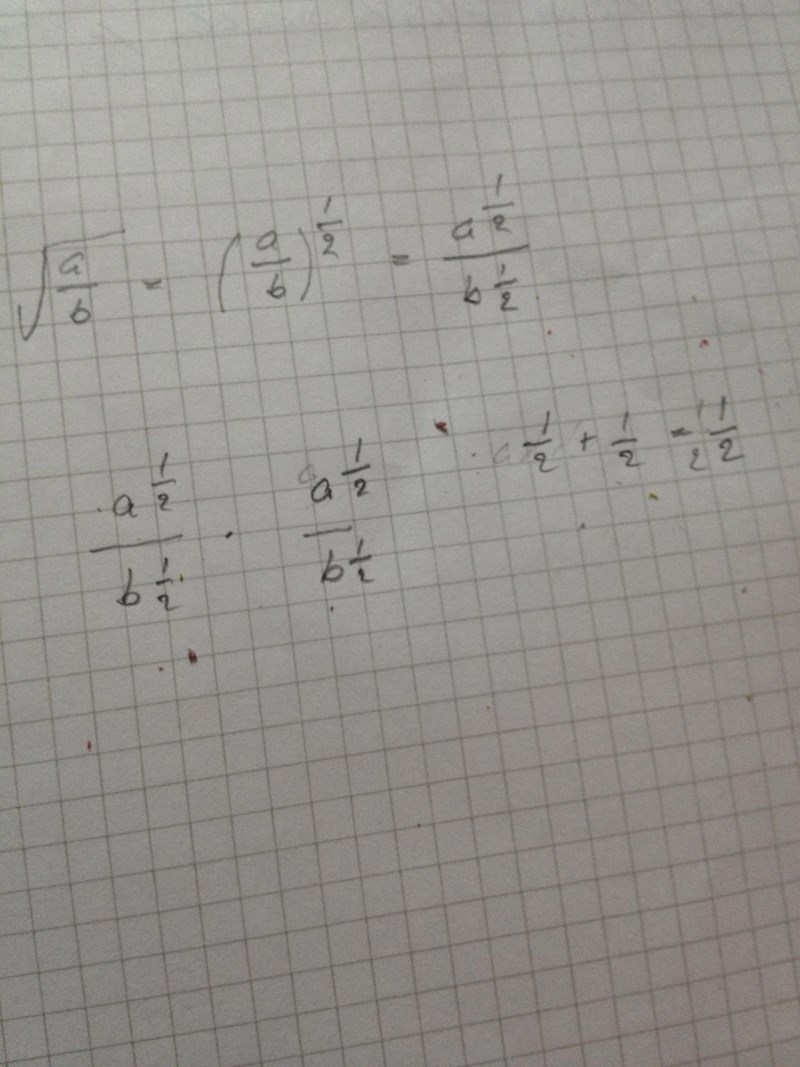 √(a/b) = (a/b)^(1/2) = a^(1/2) / b^(1/2)
a^(1/2) / b^(1/2) · a^(1/2) / b^(1/2)
1/2 + 1/2 =